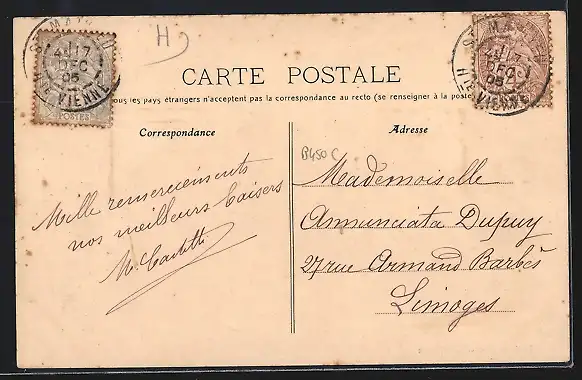 H
CARTE POSTALE
ous les pays étrangers n'acceptent pas la correspondance au recto (se renseigner à la poste
Correspondance
Adresse
B450 C
Mille remerciements
nos meilleurs baisers
Mademoiselle
Annunciata Dupuy
27 rue Armand Barbès
Limoges
POSTES
17
DEC
05
HTE VIENNE
17
DEC
05
HTE VIENNE